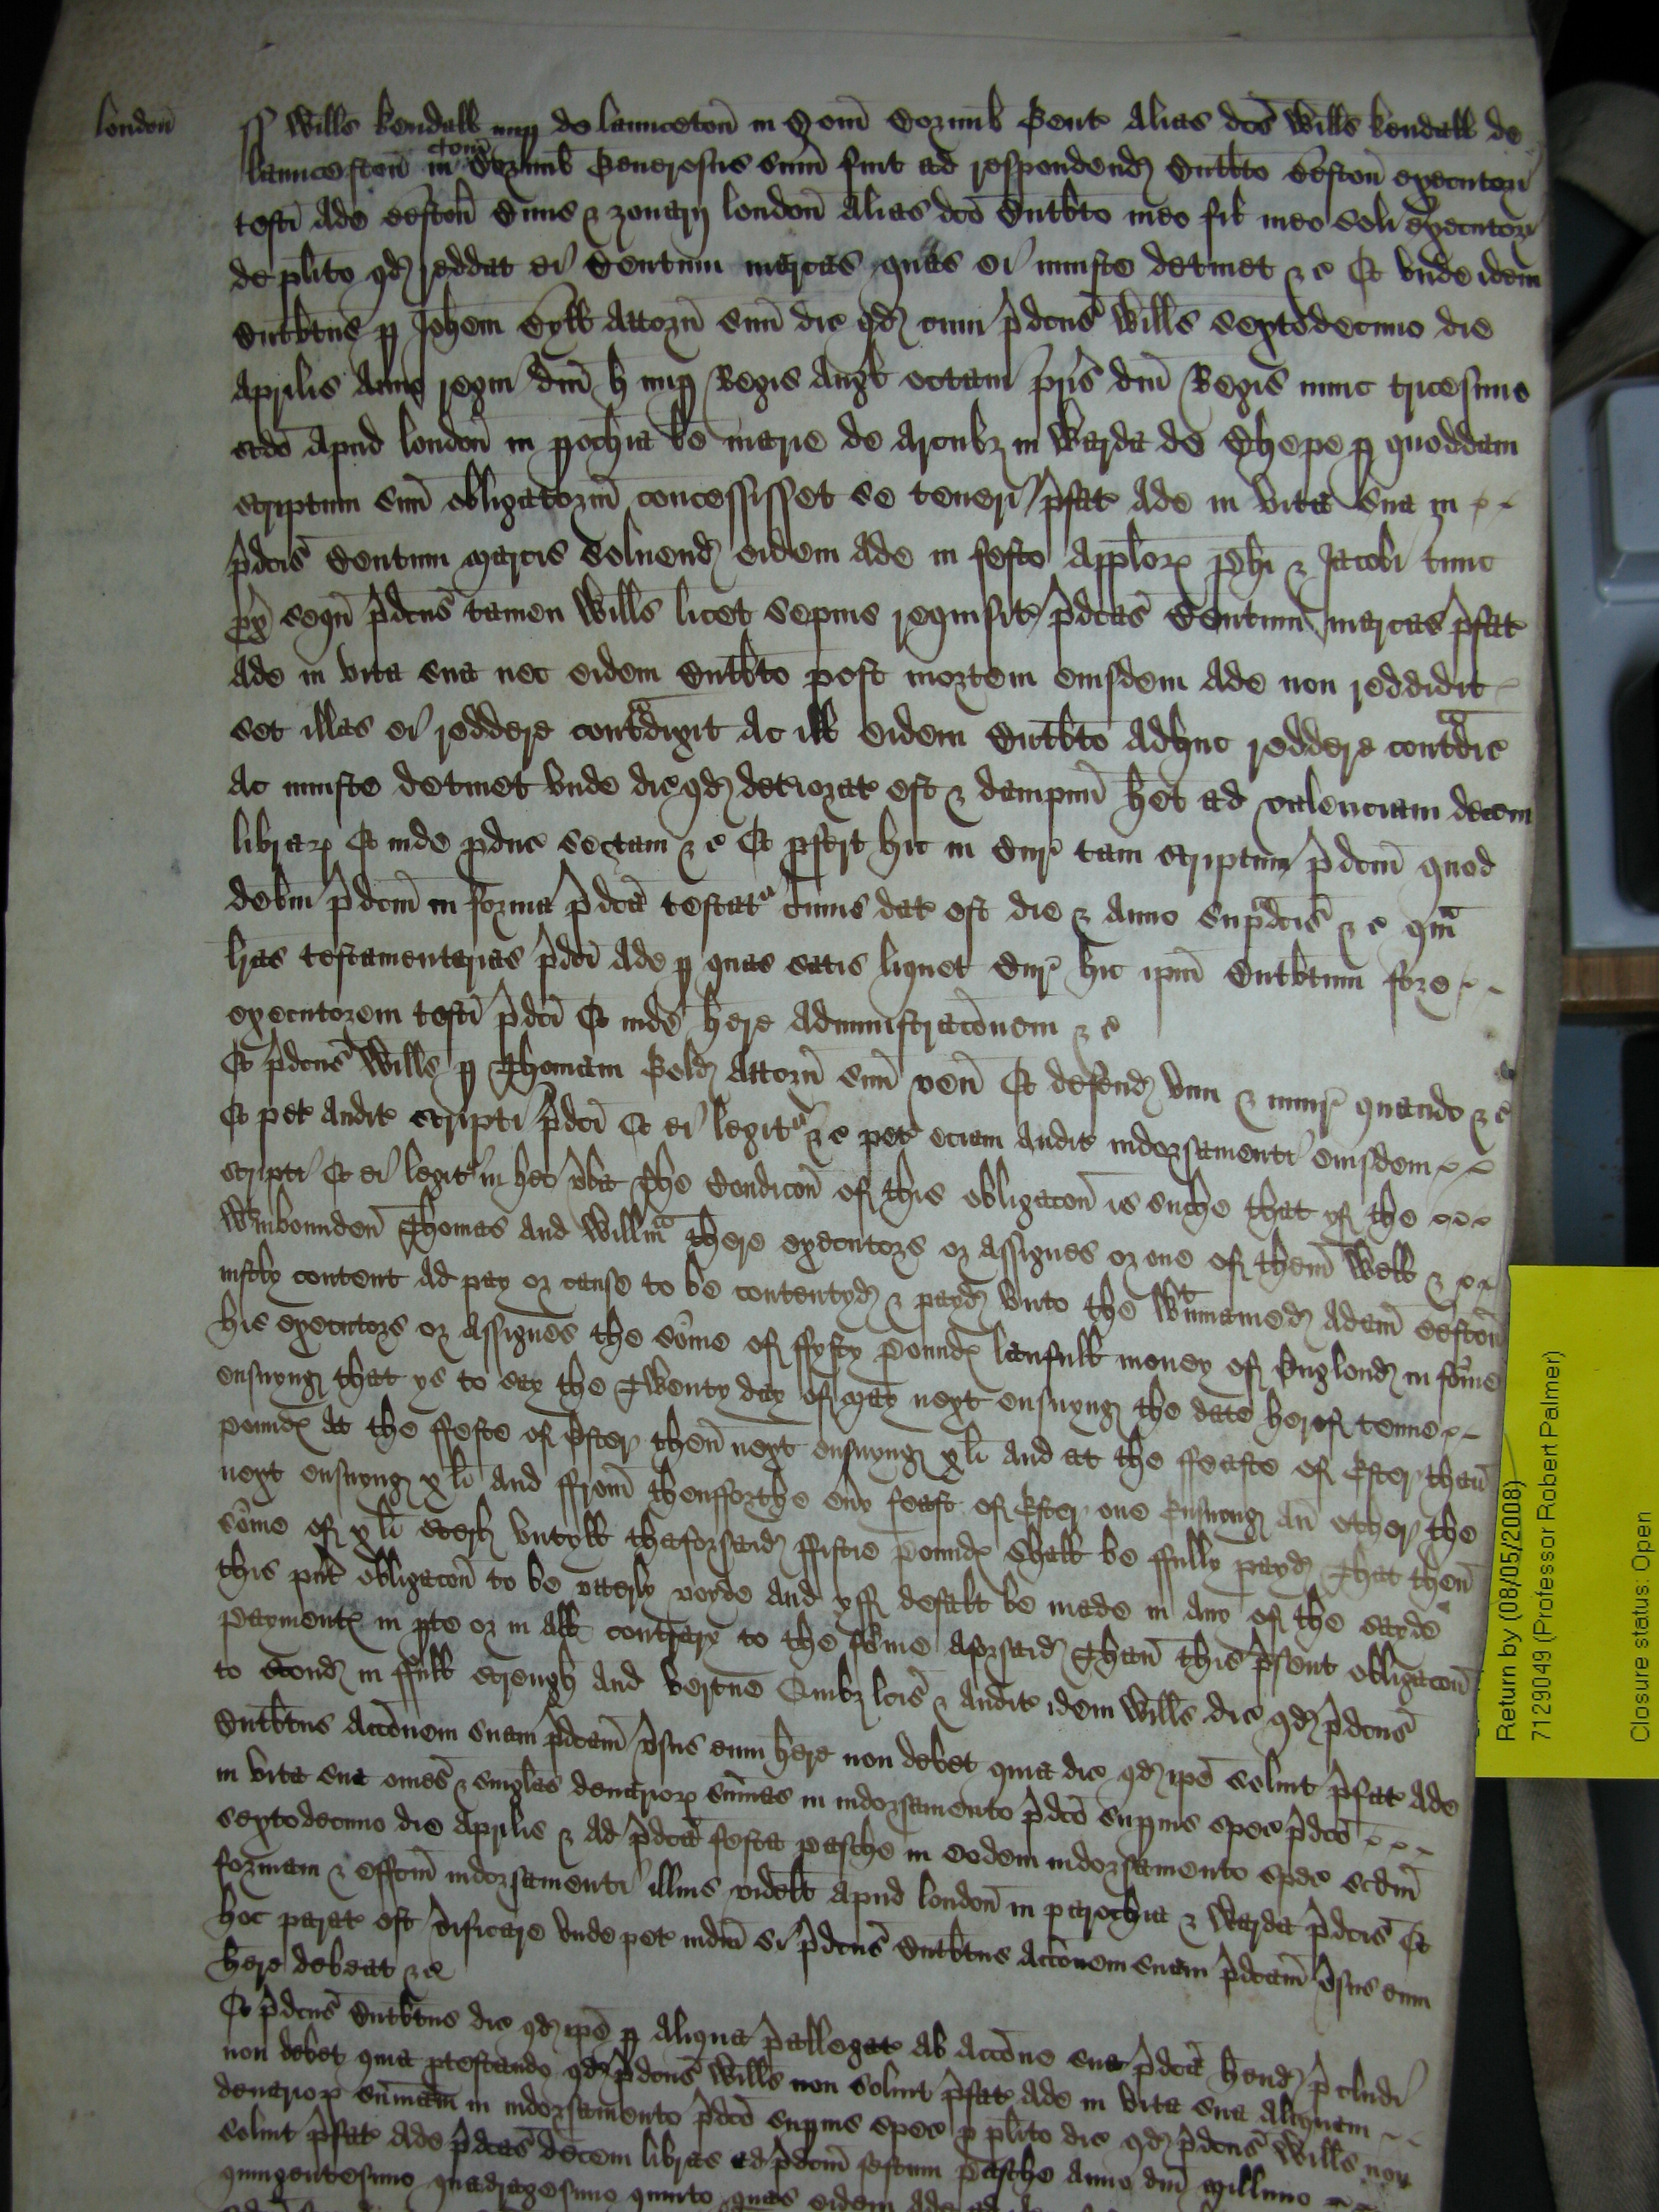 londoñ
ss Witts kendall nup de launcetoñ in Com Cornub Gent alias dcs Witts kendall de
launcestoñ in Com Cornub Generosus sum fuit ad respondend Cutbto Eestoñ executori
testi Ade Eestoñ Civis & London alias dco Cutbto meo fil meo soli executori
de plito qd reddat ei Centum marcas quas ei iniuste detinet &c Et unde idem
Cutbtus p Johem Attorn suu dic qd cum pdcus Witts sextodecimo die
Aprilis Anno regni dni h nup Regis Angl octavi pris dni Regis nunc tricesimo
scdo apud london in pochia be marie de Arcubz in Warda de Chepe p quoddam
scriptum suu obligatoriu concessisset se teneri pfat Ade in vita sua in
pdcis Centum marcis Solvend eidem Ade in festo Applor phi & Jacobi tunc
px sequ pdcus tamen Witts licet sepius requisit pdcas Centum marcas pfat
Ade in vita sua nec eidem Cutbto post mortem eiusdem Ade non reddidit
set illas ei reddere contradixit Ac ill eidem Cutbto adhuc reddere contradic
ac iniuste detinet unde dic qd deteriorat est & dampnu het ad valenciam decem
librar Et inde pduc sectam &c Et pfert hic in Cur tam scriptum pdcm quod
debm pdcm in forma pdca testat cuius dat est die & anno supradcis &c qm
lras testamentarias pdci Ade p quas satis liquet Cur hic ipm Cutbtum fore
executorem testi pdci Et inde here administracoem &c
Et pdcus Witts p Thomam Attorn suu ven Et defend vim & iniur quando &c
Et pet audit scripti pdci Et ei legit &c pet eciam audit indorsamenti eiusdem
scripti Et ei legit in hec vba The Condicon of this obligacon is suche that yf the
Wtinbounden Thomas and Willm there executors or assignes or one of them Well &
iustly content ad pay or cause to be contentyd & payd unto the Wtinnamed Adam Eeston
his executors or assignes the Some of ffyfty Pound laufull money of England in forme
ensuyng that ys to say the Twenty day of may next ensuyng the date herof tenne
pound At the ffeste of Ester then next ensuyng xli And at the ffeaste of Ester than
next ensuyng xli And ffrom thensforthe evy feast of Ester one Ensuyng an other the
some of xli sterl untyll thaforsaid ffiftie Pound shall be ffully payd That then
this pnt obligacon to be uterly voyde And yff defalt be made in any of the sayde
payment in pte or in all contrary to the forme aforsaid Than this psent obligacon
to stond in ffull strength and vertue Quibz lcis & audit idem Witts dic qd pdcus
Cutbtus accoem suam pdcam vsus eum here non debet quia dic qd ipe solvit pfat Ade
in vita sua omes & singlas denarior sumas in indorsamento pdco supius spec pdco
sextodecimo die Aprilis & ad pdca festa pasche in eodem indorsamento spec scdm
formam & effcm indorsamenti illius videlt apud london in parochia & Warda pdcis Et
hoc parat est vificare unde pet iudm si pdcus Cutbtus accoem suam pdcam vsus eum
here debeat &c
Et pdcus Cutbtus dic qd ipe p aliqua pallegat ab accoe sua pdca hend pcludi
non debet quia ptestando qd pdcus Witts non solvit pfat Ade in vita sua aliquam
denarior sumam in indorsamento pdco supius spec p plito dic qd pdcus Witts non
solvit pfat Ade pdcas decem libras ad pdcm festum Pasche anno dni millimo
quingentesimo quadragesimo quinto quas eidem Ade ad
Return by (08/05/2008)
7129049 (Professor Robert Palmer)
Closure status: Open